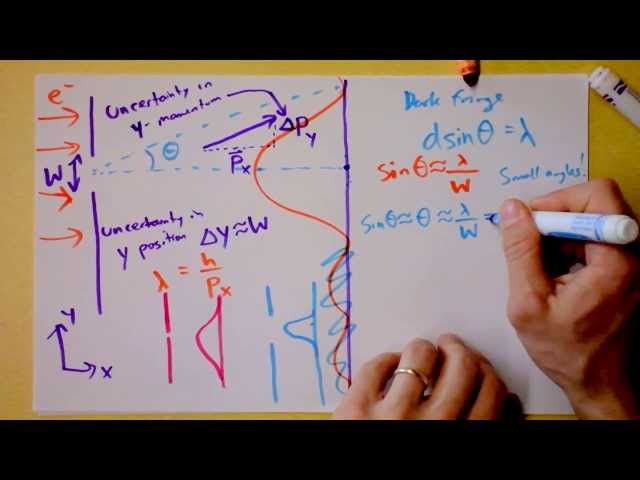 e⁻
W
Uncertainty in
y-momentum
ΔPy
θ
P̄x
Uncertainty in
y position Δy≈W
λ = h/Px
Y
X
Dark Fringe
d sinθ = λ
sinθ ≈ λ/W
Small angles!
sinθ ≈ θ ≈ λ/W =